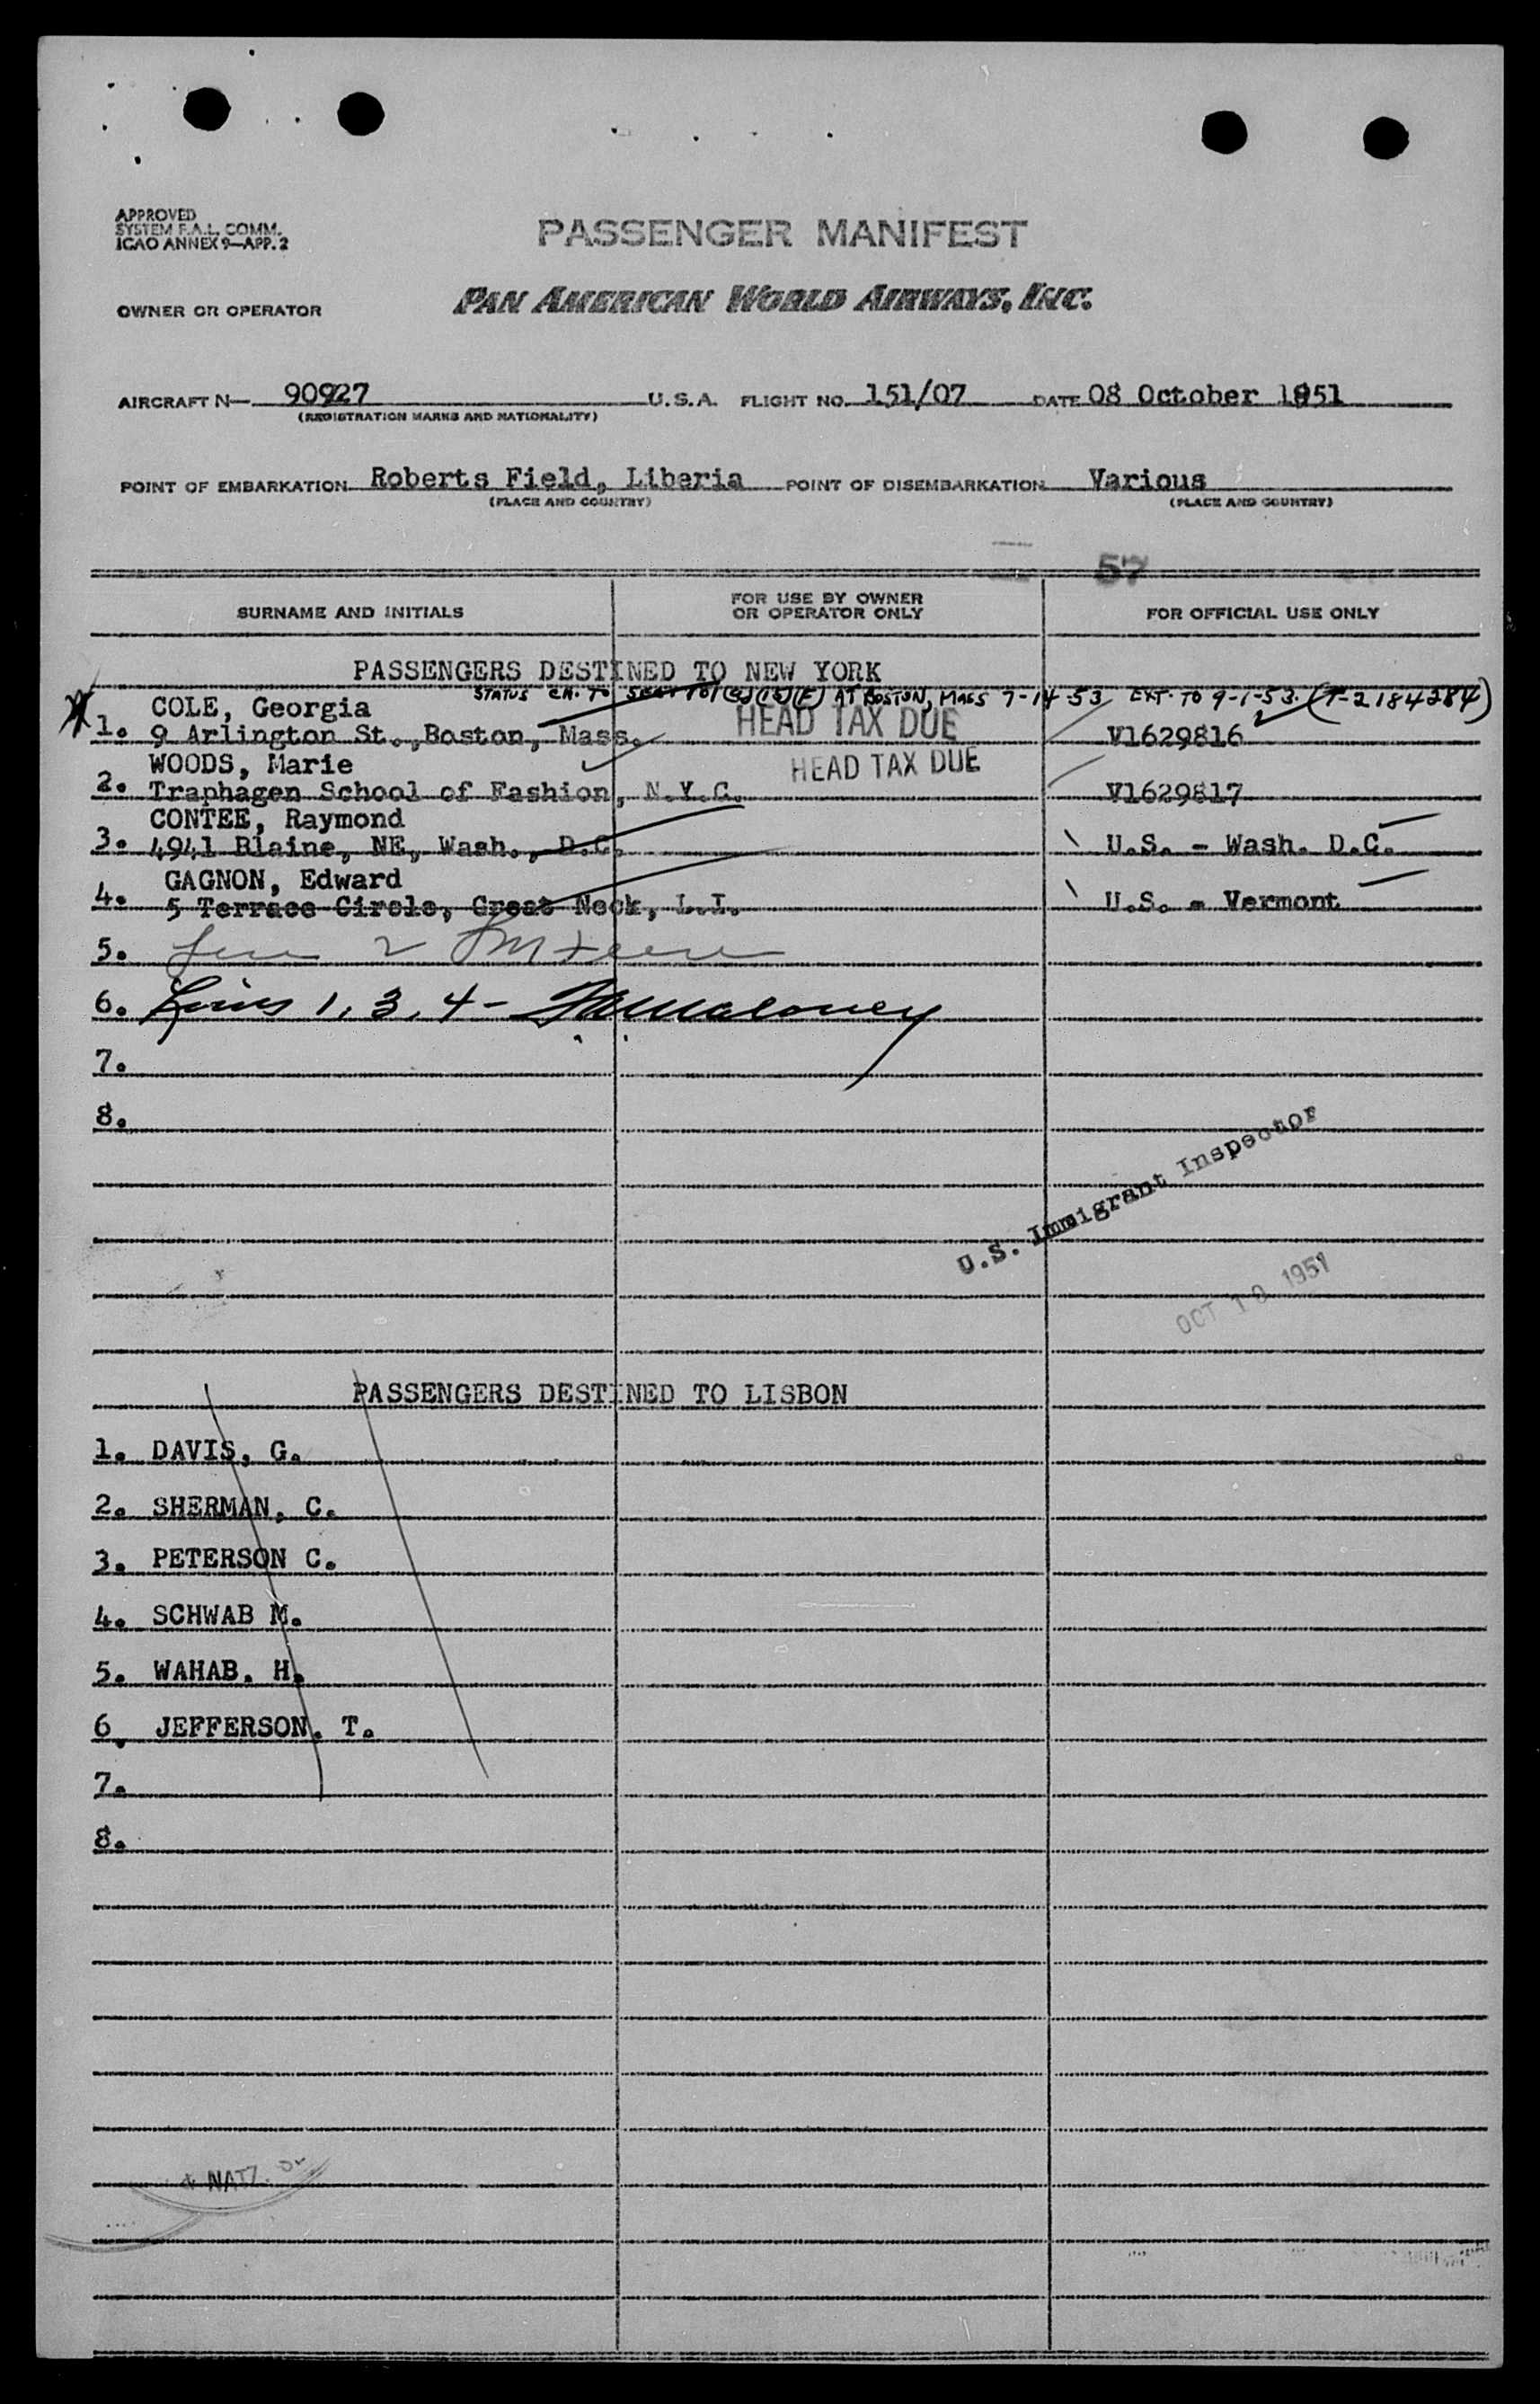 APPROVED
SYSTEM F.A.L. COMM.
ICAO ANNEX 9—APP. 2
PASSENGER MANIFEST
OWNER OR OPERATOR PAN AMERICAN WORLD AIRWAYS, INC.
AIRCRAFT N— 90927 U.S.A. FLIGHT NO. 151/07 DATE 08 October 1951
(REGISTRATION MARKS AND NATIONALITY)
POINT OF EMBARKATION Roberts Field, Liberia POINT OF DISEMBARKATION Various
(PLACE AND COUNTRY) (PLACE AND COUNTRY)
57
SURNAME AND INITIALS FOR USE BY OWNER OR OPERATOR ONLY FOR OFFICIAL USE ONLY
PASSENGERS DESTINED TO NEW YORK
STATUS CH. TO AT BOSTON, MASS 7-14-53 EXT. TO 9-1-53. (T-2184284)
COLE, Georgia HEAD TAX DUE
1. 9 Arlington St., Boston, Mass. V1629816
WOODS, Marie HEAD TAX DUE
2. Traphagen School of Fashion, N.Y.C. V1629817
CONTEE, Raymond
3. 4941 Blaine, NE, Wash., D.C. U.S. - Wash. D.C.
GAGNON, Edward
4. 5 Terrace Circle, Great Neck, L.I. U.S. - Vermont
5. 2
6. Lines 1, 3, 4 - Maloney
7.
8.
U.S. Immigrant Inspector
OCT 10 1951
PASSENGERS DESTINED TO LISBON
1. DAVIS, G.
2. SHERMAN, C.
3. PETERSON C.
4. SCHWAB M.
5. WAHAB. H.
6. JEFFERSON. T.
7.
8.